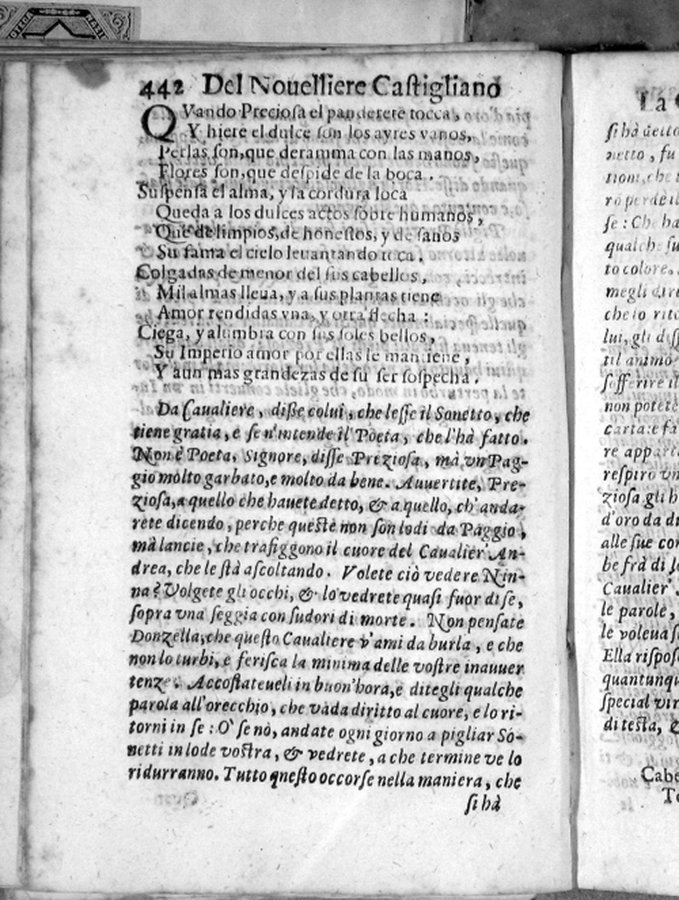 442 Del Nouelliere Castigliano
QVando Preciosa el panderete tocca,
Y hiere el dulce son los ayres vanos,
Perlas son, que deramma con las manos,
Flores son, que despide de la boca.
Suspensa el alma, y la cordura loca
Queda a los dulces actos sobre humanos,
Que de limpios, de honestos, y de sanos
Su fama el cielo leuantando toca.
Colgadas de menor del sus cabellos,
Mil almas lleua, y a sus plantas tiene
Amor rendidas vna, y otra flecha:
Ciega, y alumbra con sus soles bellos,
Su Imperio amor por ellas le mantiene,
Y aun mas grandezas de su ser sospecha.
Da Caualiere, disse colui, che lesse il Sonetto, che
tiene gratia, e se n'intende il Poeta, che l'hà fatto.
Non è Poeta, Signore, disse Preziosa, mà vn Pag-
gio molto garbato, e molto da bene. Auuertite, Pre-
ziosa, a quello che hauete detto, & a quello, ch'anda-
rete dicendo, perche queste non son lodi da Paggio,
mà lancie, che trafiggono il cuore del Caualier' An-
drea, che le stà ascoltando. Volete ciò vedere Nin-
na? Volgete gli occhi, & lo vedrete quasi fuor di se,
sopra vna seggia con sudori di morte. Non pensate
Donzella, che questo Caualiere v'ami da burla, e che
non lo turbi, e ferisca la minima delle vostre inauuer
tenze. Accostateueli in buon'hora, e ditegli qualche
parola all'orecchio, che vada diritto al cuore, e lo ri-
torni in se: O' se nò, andate ogni giorno a pigliar So-
netti in lode vostra, & vedrete, a che termine ve lo
ridurranno. Tutto questo occorse nella maniera, che
si hà
La
si hà detto
netto, fu
tioni, che
ro perde il
se: Che ha
qualche su
to colore.
megli di
che io rito
lui, gli diss
til animo
sofferire il
non potete
carta: e fa
re appar
respiro vn
ziosa gli h
d'oro da d
alle sue con
be frà di
Caualier'.
le parole,
le voleua
Ella rispos
quantunqu
special vir
di testa, &
Cabe